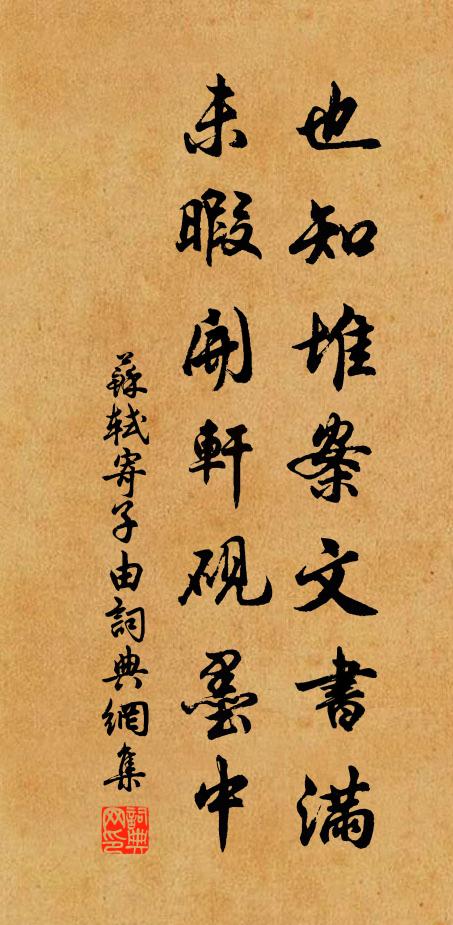 也知堆案文書滿
未暇開軒硯墨中
蘇軾寄子由詞典網集
詞典
网印